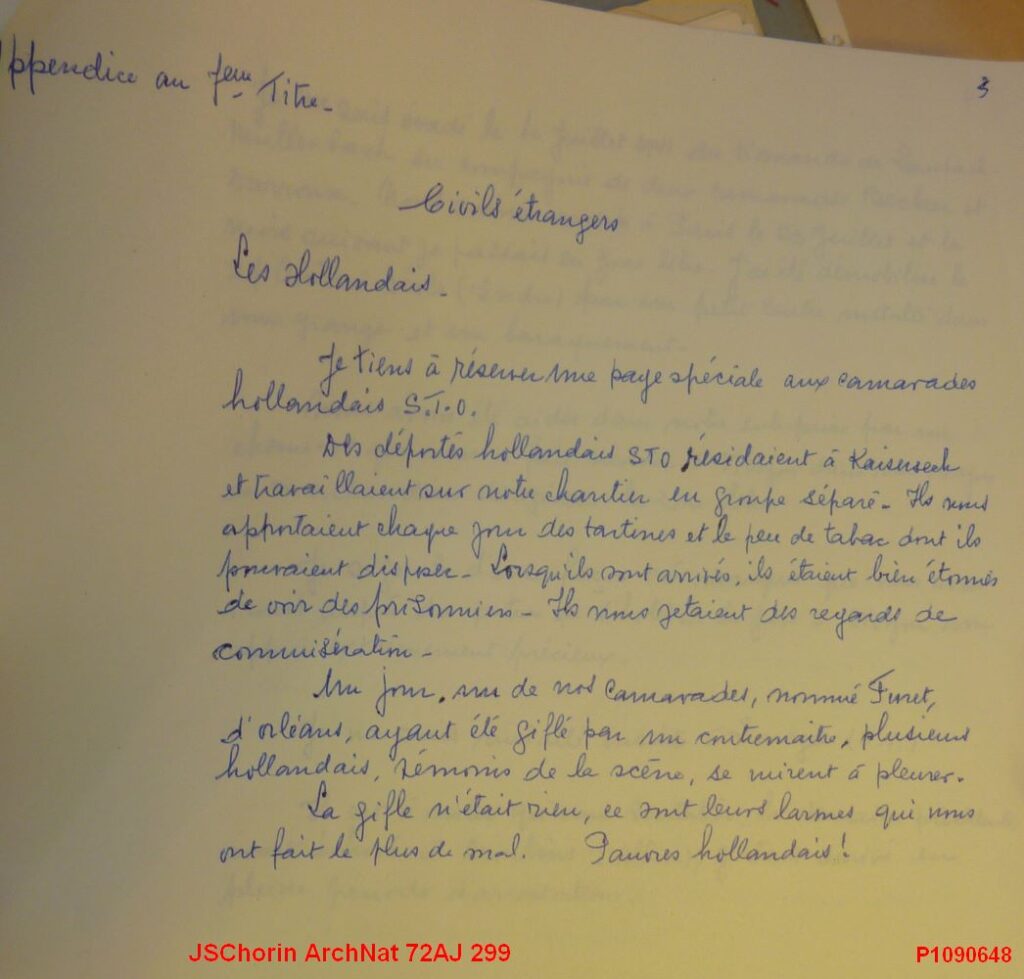 Appendice au 7eme Titre.
3
Civils étrangers
Les Hollandais.
Je tiens à réserver une page spéciale aux camarades
hollandais S.T.O.
Des déportés hollandais STO résidaient à Kaiserseck
et travaillaient sur notre chantier en groupe séparé. Ils nous
apportaient chaque jour des tartines et le peu de tabac dont ils
pouvaient disposer. Lorsqu'ils sont arrivés, ils étaient bien étonnés
de voir des prisonniers. Ils nous jetaient des regards de
commisération.
Un jour, un de nos camarades, nommé Furet,
d'orléans, ayant été giflé par un contremaitre, plusieurs
hollandais, témoins de la scène, se mirent à pleurer.
La gifle n'était rien, ce sont leurs larmes qui nous
ont fait le plus de mal. Pauvres hollandais!
JSChorin ArchNat 72AJ 299
P1090648